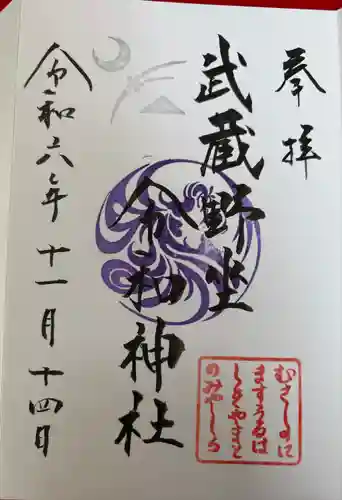 奉拝
武蔵野坐
令和神社
令和六年十一月十四日
むさしのに
ますうるは
しきやまと
のみやしろ